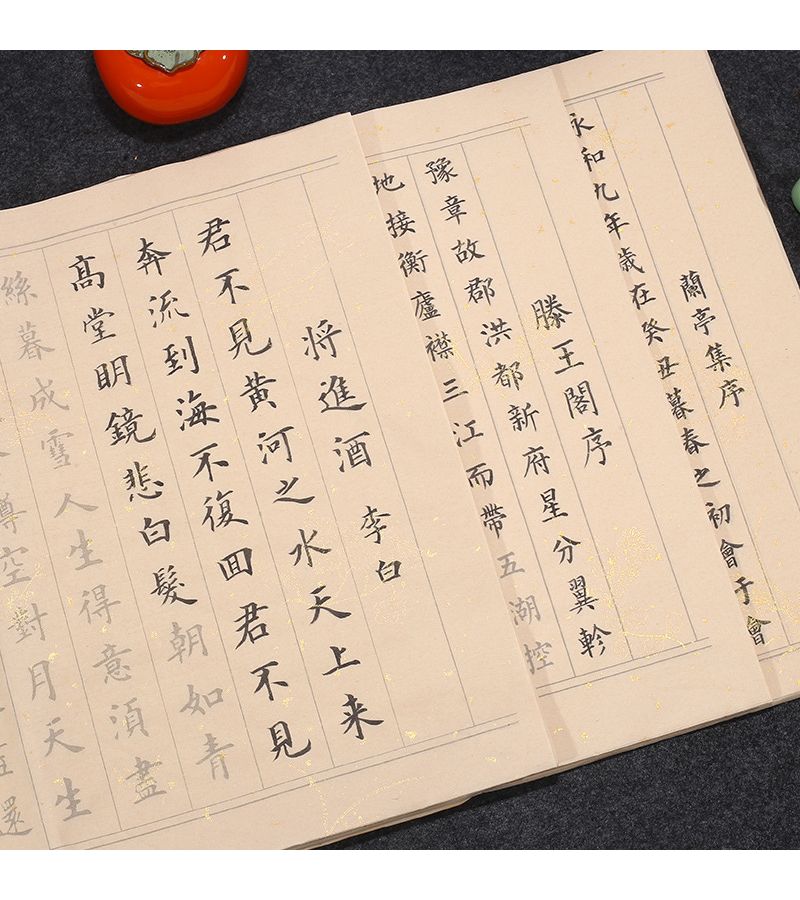 蘭亭集序
永和九年歲在癸丑暮春之初會于會
滕王閣序
豫章故郡洪都新府星分翼軫
地接衡廬襟三江而帶五湖控
将進酒 李白
君不見黄河之水天上来
奔流到海不復回君不見
高堂明鏡悲白髮朝如青
絲暮成雪人生得意須盡
樽空對月天生
還